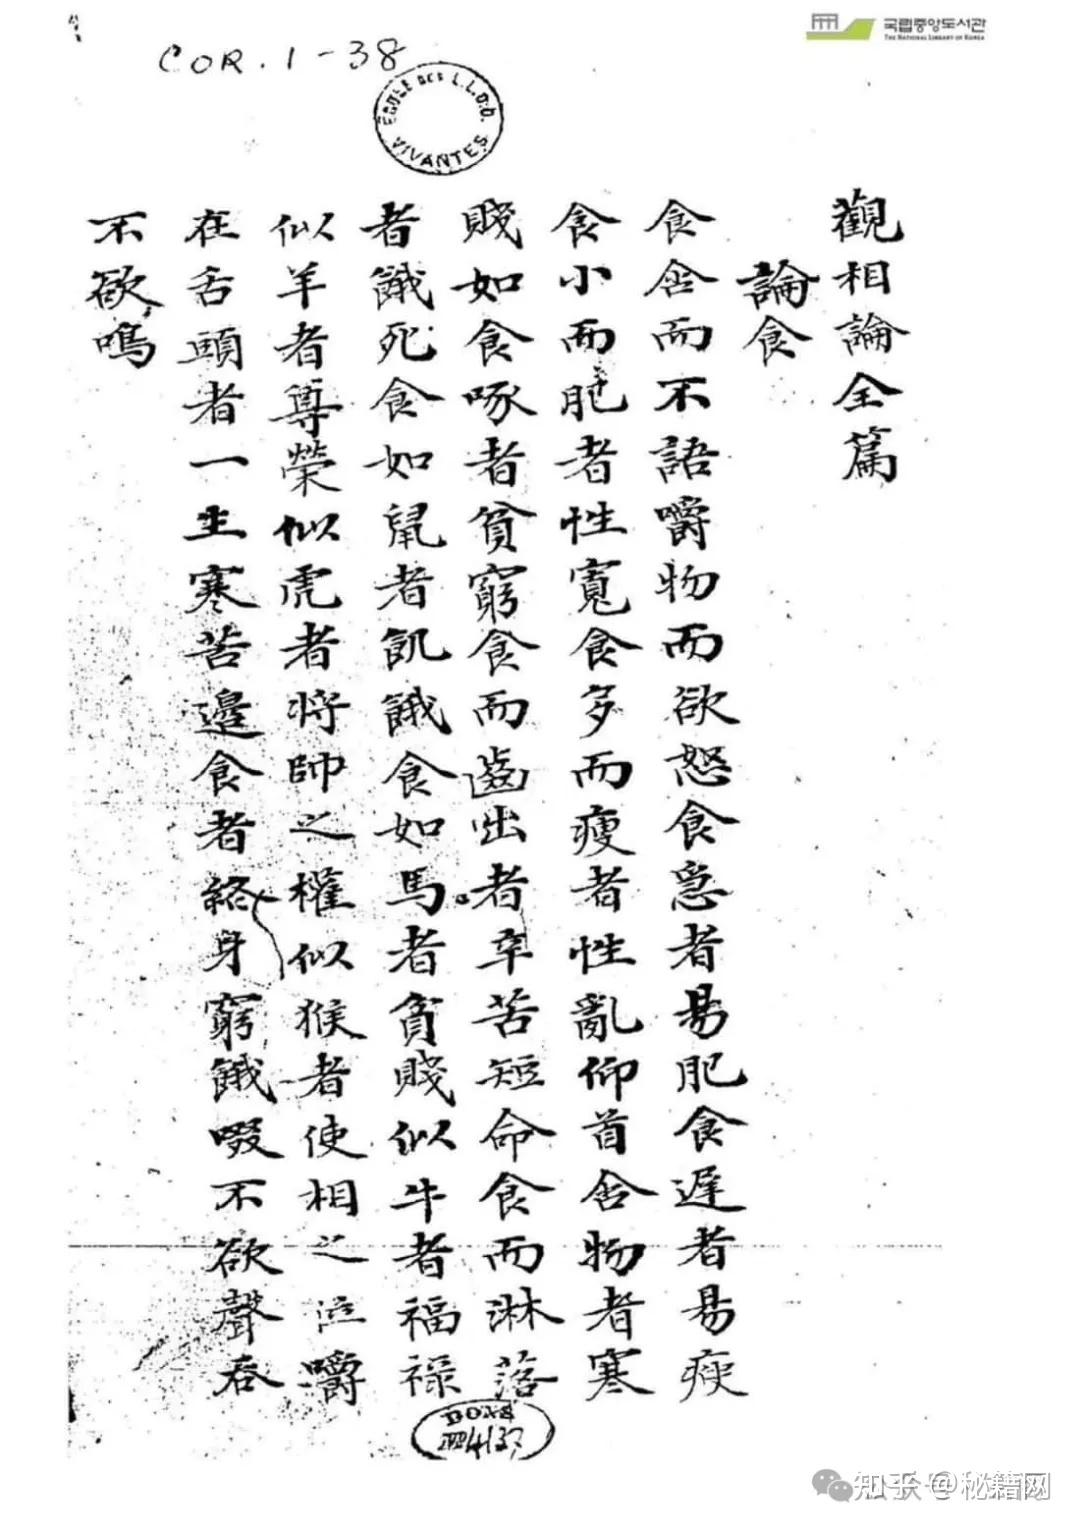 COR. 1-38
ECOLE DES L.L.O.O. VIVANTES
국립중앙도서관
THE NATIONAL LIBRARY OF KOREA
觀相論全篇
論食
食含而不語嚼物而欲怒食急者易肥食遲者易瘦
食小而肥者性寬食多而瘦者性亂仰首含物者寒
賤如食啄者貧窮食而齒出者辛苦短命食而淋落
者餓死食如鼠者飢餓食如馬者貧賤似牛者福祿
似羊者尊榮似虎者將帥之權似猴者使相之位嚼
在舌頭者一生寒苦邉食者終身窮餓啜不欲聲吞
不欲鳴
DONS
4137
知乎 @秘籍网